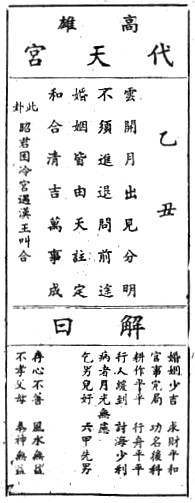 高雄
代天宮
乙丑
雲開月出見分明
不須進退問前途
婚姻皆由天註定
和合清吉萬事成
此卦
昭君困冷宮遇漢王叫合
解曰
婚姻少吉 求財平和
官事完局 功名後科
耕作平平 行舟平平
行人緩到 討海少利
病者月光無慮
乞男兒好 六甲先男
存心不善 風水無益
不孝父母 奉神無益